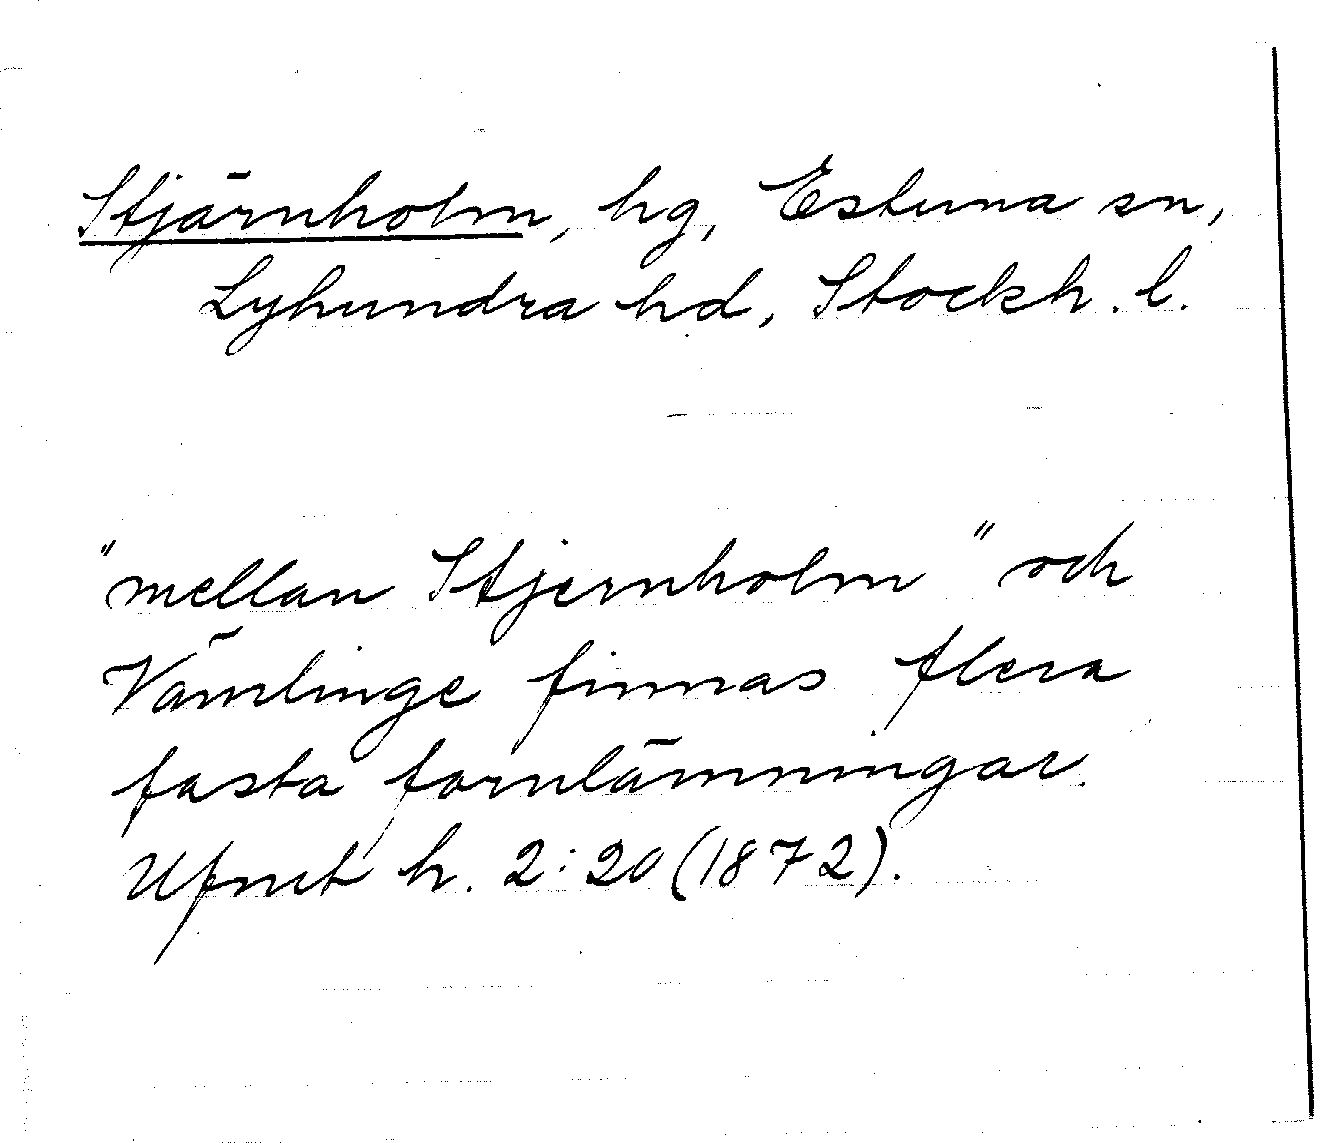 Stjärnholm, hg, Estuna sn,
Lyhundra hd, Stockh. l.
"mellan Stjernholm" och
Vämlinge finnas flera
fasta fornlämningar.
Ufmt h. 2:20 (1872).